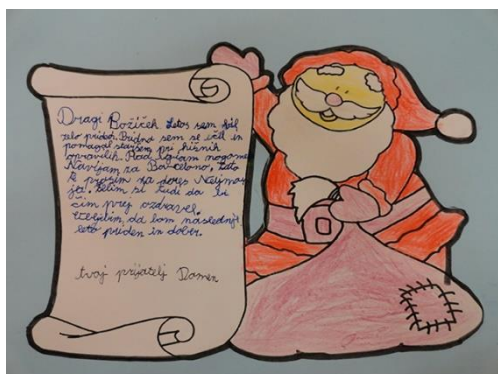 Dragi Božiček. Letos sem bil
zelo priden. Pridno sem se učil in
pomagal staršem pri hišnih
opravilih. Rad igram nogomet.
Navijam za Barcelono. Zato
te prosim za dres Neymar
ja. Želim si tudi da bi
čim prej ozdravel.
Obljubim, da bom naslednje
leto priden in dober.
tvoj prijatelj Domen